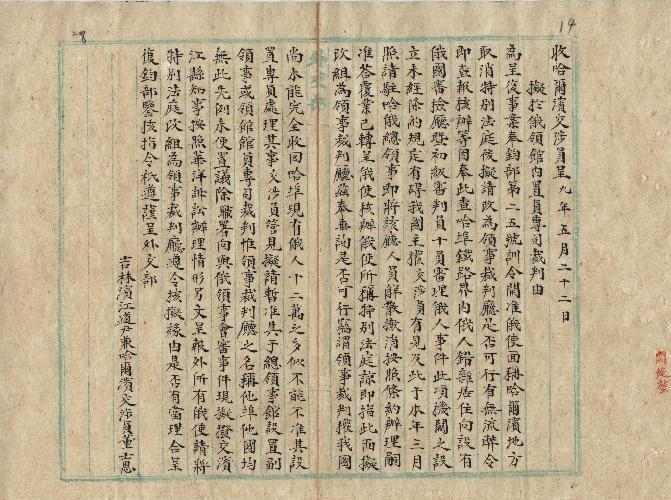 14
收哈爾濱交涉員呈 九年五月二十二日
擬於俄領館內置員專司裁判由
為呈復事案奉鈞部第二五號訓令開准俄使面稱哈爾濱地方
取消特別法庭後擬請改為領事裁判廳是否可行有無流弊令
即查報核辦等因奉此查哈埠鐵路界內俄人錯雜居住向設有
俄國審檢廳暨初級審判員十員審理俄人事件此項機關之設
立未經條約規定有碍我國主權交涉員有見及此于本年三月
照請駐哈俄總領事即將該廳人員解散撤消按照條約辦理嗣
准答覆業已轉呈俄使核辦俄使所稱特別法庭諒即指此而擬
改組為領事裁判廳茲奉垂詢是否可行竊謂領事裁判權我國
尚未能完全收回哈埠現有俄人十二萬之多似不能不准其設
置專員處理其事交涉員管見擬請暫准其于總領事館設置副
領事或領館館員專司裁判惟領事裁判廳之名稱他埠他國均
無此先例未便置議除職署向與俄領事會審事件現擬撥交濱
江縣知事按照華洋訴訟辦理情形另文呈報外所有俄使請將
特別法庭改組為領事裁判廳遵令核擬緣由是否有當理合呈
復鈞部鑒核指令祇遵謹呈外交部
吉林濱江道尹兼哈爾濱交涉員董士恩
28